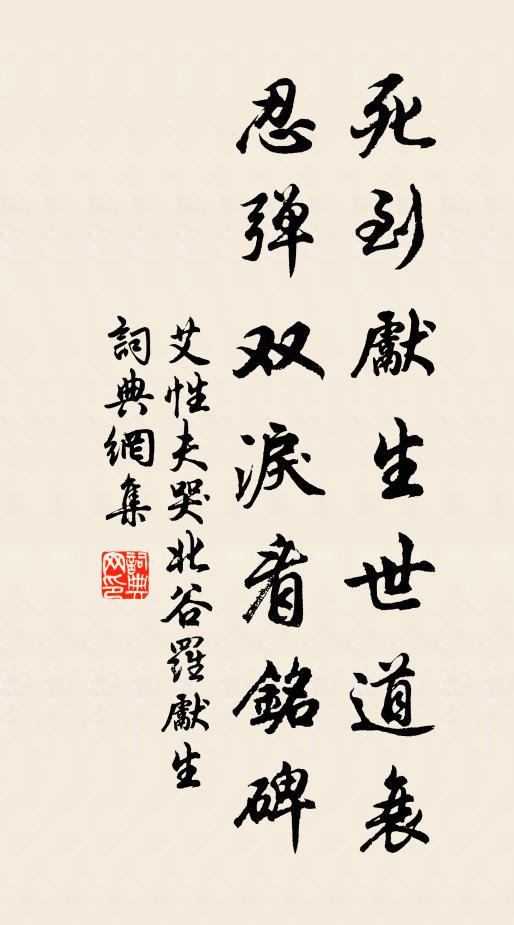 死到獻生世道衰
忍弹双淚看銘碑
艾性夫哭北谷羅獻生
詞典網集
詞典网印